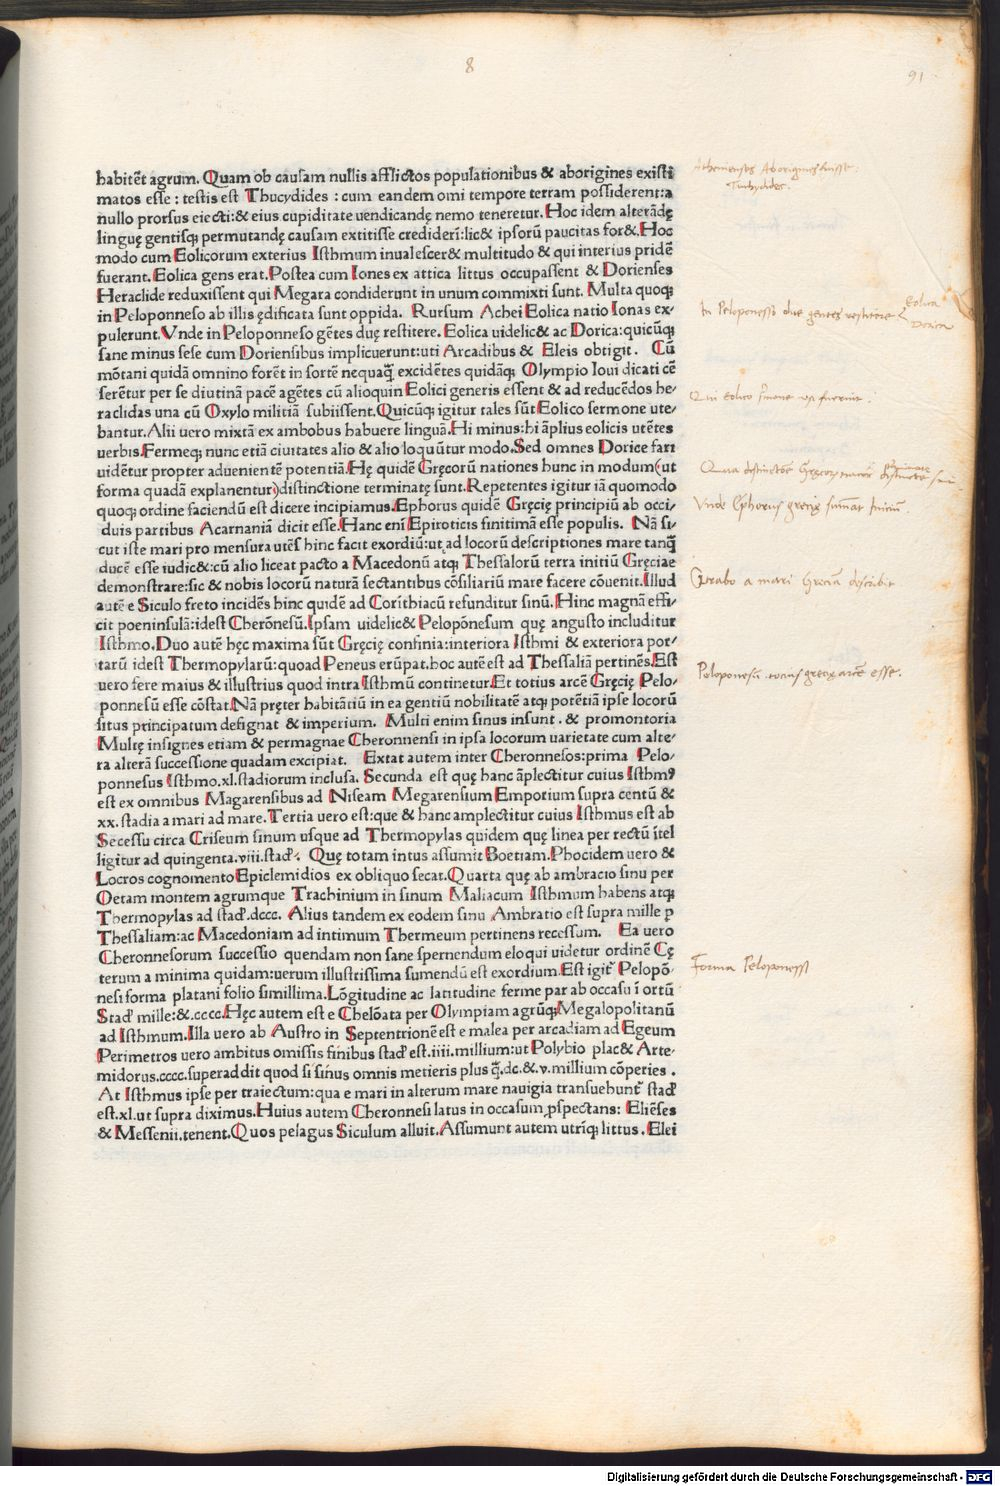 8
91
habitēt agrum. Quam ob causam nullis afflictos populationibus & aborigines existi
matos esse : testis est Thucydides : cum eandem omi tempore terram possiderent:a
nullo prorsus eiecti:& eius cupiditate uendicandę nemo teneretur. Hoc idem alterādę
linguę gentisq; permutandę causam extitisse crediderī:lic& ipsorū paucitas for&. Hoc
modo cum Eolicorum exterius Isthmum inualescer& multitudo & qui interius pridē
fuerant. Eolica gens erat. Postea cum Iones ex attica littus occupassent & Dorienses
Heraclide reduxissent qui Megara condiderunt in unum commixti sunt. Multa quoq;
in Peloponneso ab illis ędificata sunt oppida. Rursum Achei Eolica natio Ionas ex-
pulerunt. Vnde in Peloponneso gētes duę restitere. Eolica uidelic& ac Dorica:quicūq;
sane minus sese cum Doriensibus implicuerunt:uti Arcadibus & Eleis obtigit. Cū
mōtani quidā omnino forēt in sortē nequaq̄ excidētes quidāq; Olympio Ioui dicati cē
serētur per se diutinā pacē agētes cū alioquin Eolici generis essent & ad reducēdos he-
raclidas una cū Oxylo militiā subiissent. Quicūq; igitur tales sūt Eolico sermone ute-
bantur. Alii uero mixtā ex ambobus habuere linguā. Hi minus:hi āplius eolicis utētes
uerbis. Fermeq; nunc etiā ciuitates alio & alio loquūtur modo. Sed omnes Dorice fari
uidētur propter aduenientē potentiā. Hę quidē Gręcorū nationes hunc in modum(ut
forma quadā explanentur)distinctione terminatę sunt. Repetentes igitur iā quomodo
quoq; ordine faciendū est dicere incipiamus. Ephorus quidē Gręcię principiū ab occi-
duis partibus Acarnaniā dicit esse. Hanc enī Epiroticis finitimā esse populis. Nā si-
cut iste mari pro mensura utēs hinc facit exordiū:ut ad locorū descriptiones mare tanq̄
ducē esse iudic&:cū alio liceat pacto a Macedonū atq; Thessalorū terra initiū Gręciae
demonstrare:sic & nobis locorū naturā sectantibus cōsiliariū mare facere cōuenit. Illud
autē e Siculo freto incidēs hinc quidē ad Corīthiacū refunditur sinū. Hinc magnā effi-
cit poeninsulā:idest Cherōnesū. Ipsam uidelic& Pelopōnesum quę angusto includitur
Isthmo. Duo autē hęc maxima sūt Gręcię confinia:interiora Isthmi & exteriora por-
tarū idest Thermopylarū:quoad Peneus erūpat.hoc autē est ad Thessaliā pertinēs. Est
uero fere maius & illustrius quod intra Isthmū continetur. Et totius arcē Gręcię Pelo-
ponnesū esse cōstat. Nā pręter habitātiū in ea gentiū nobilitatē atq; potētiā ipse locorū
situs principatum designat & imperium. Multi enim sinus insunt . & promontoria
Multę insignes etiam & permagnae Cheronnensi in ipsa locorum uarietate cum alte-
ra alterā successione quadam excipiat. Extat autem inter Cheronnesos:prima Pelo-
ponnesus Isthmo.xl.stadiorum inclusa. Secunda est quę hanc āplectitur cuius Isthmꝰ
est ex omnibus Magarensibus ad Niseam Megarensium Emporium supra centū &
xx. stadia a mari ad mare. Tertia uero est:que & hanc amplectitur cuius Isthmus est ab
Secessu circa Criseum sinum usque ad Thermopylas quidem quę linea per rectū ītel
ligitur ad quingenta.viii.stad'. Quę totam intus assumit Boetiam. Phocidem uero &
Locros cognomento Epiclemidios ex obliquo secat. Quarta quę ab ambracio sinu per
Oetam montem agrumque Trachinium in sinum Maliacum Isthmum habens atq;
Thermopylas ad stad'.dccc. Alius tandem ex eodem sinu Ambratio est supra mille ꝑ
Thessaliam:ac Macedoniam ad intimum Thermeum pertinens recessum. Ea uero
Cheronnesorum successio quendam non sane spernendum eloqui uidetur ordinē Cę
terum a minima quidam:uerum illustrissima sumendū est exordium. Est igit' Pelopō-
nesi forma platani folio simillima. Lōgitudine ac latitudine ferme par ab occasu ī ortū
Stad' mille:&.cccc. Hęc autem est e Chelōata per Olympiam agrūq; Megalopolitanū
ad Isthmum. Illa uero ab Austro in Septentrionē est e malea per arcadiam ad Egeum
Perimetros uero ambitus omissis finibus stad' est.iiii.millium:ut Polybio plac& Arte-
midorus.cccc.superaddit quod si sinus omnis metieris plus q̄.dc.& v.millium cōperies .
At Isthmus ipse per traiectum:qua e mari in alterum mare nauigia transuehunt' stad'
est.xl.ut supra diximus. Huius autem Cheronnesi latus in occasum ꝓspectans: Eliēses
& Messenii.tenent. Quos pelagus Siculum alluit. Assumunt autem utrūq; littus . Elei
Athenienses Aborigines fuisse:
Tuchydides.
In Peloponesso due gentes restitere
Eolica
Dorica
Qui Eolico
Unde Ephorus grecię sumat Iniciū.
Strabo a mari Greciā describit
Peloponesū totius grecię arcē esse.
Forma Peloponessi
Digitalisierung gefördert durch die Deutsche Forschungsgemeinschaft - DFG